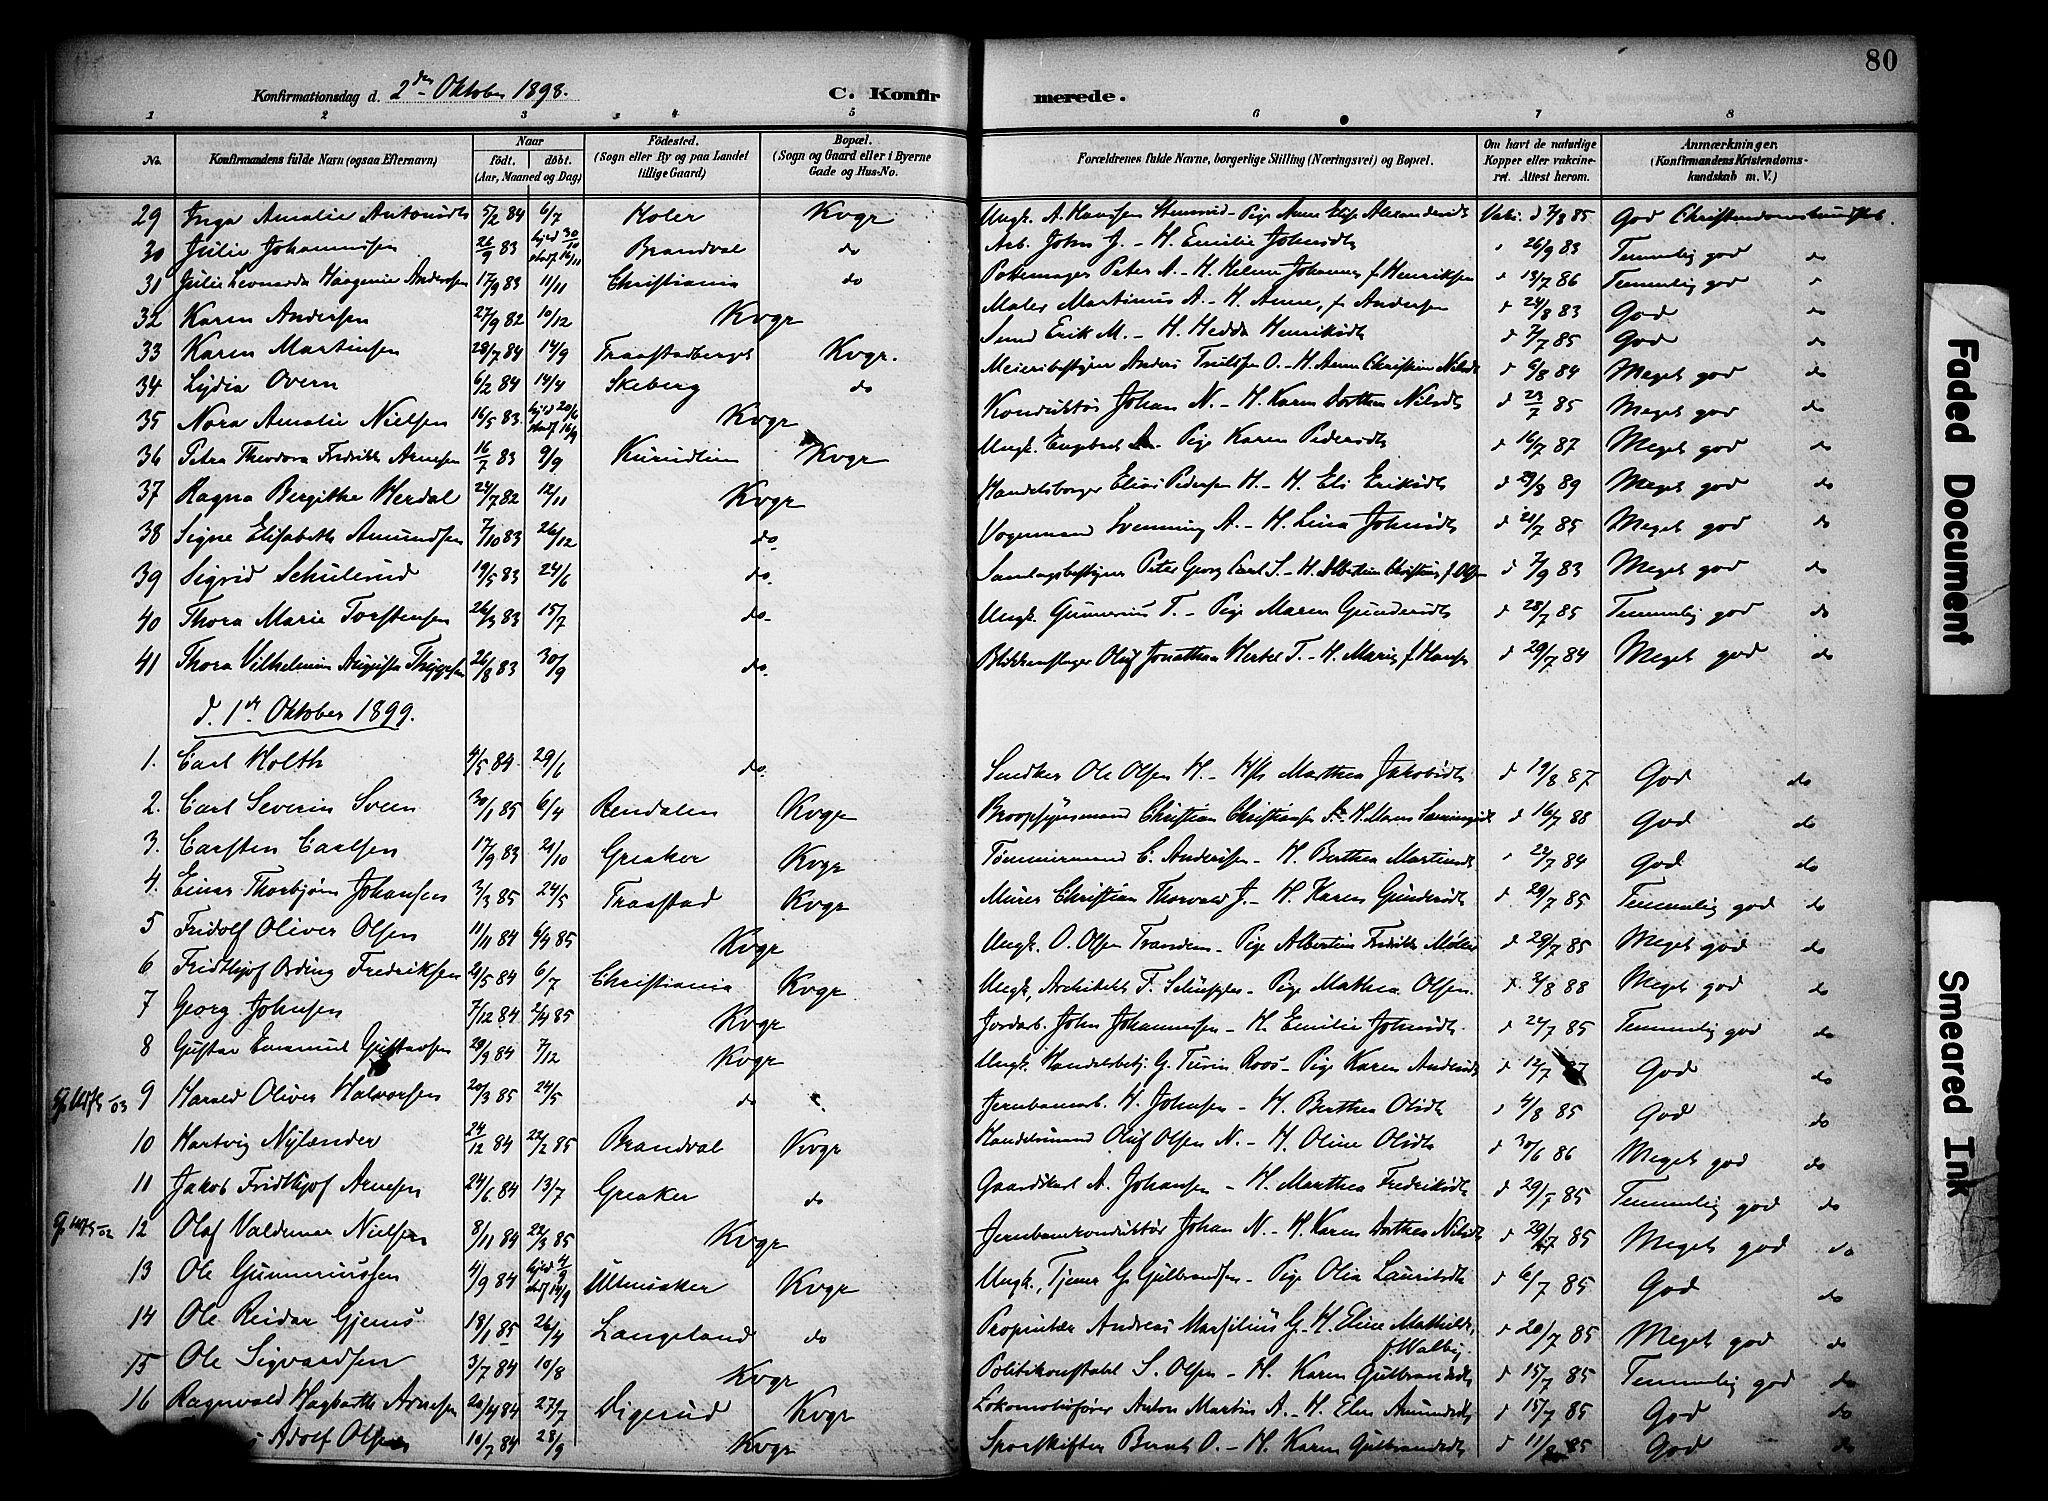 80
Konfirmationsdag d. 2den Oktober 1898. C. Konfirmerede.
1 2 3 4 5 6 7 8
No. Konfirmandens fulde Navn (ogsaa Efternavn) Naar født, døbt. (Aar, Maaned og Dag) Fødested. (Sogn eller By og paa Landet tillige Gaard) Bopæl. (Sogn og Gaard eller i Byerne Gade og Hus-No. Forældrenes fulde Navne, borgerlige Stilling (Næringsvei) og Bopæl. Om havt de naturlige Kopper eller vaccineret. Attest herom. Anmærkninger. (Konfirmandens Kristendomskundskab m. V.)
29 Inga Amalie 5/2 84 6/7 Kvgr Ungk. A. Hanssen - Pige Anne Elise d 7/8 85 God
30 Julie Johannessen 26/9 83 Brandval do Arb. John J. - H. Emilie Johnsdt 26/9 83 Temmelig god do
31 Julie Leonarda Andersen 17/9 83 11/11 Christiania do Peter A. - H. f. Henriksen d 13/7 86 Temmelig god
32 Karen Andersen 27/9 82 10/12 Kvgr Maler Martinus A. - H. Anne, f. Andersen d 24/8 83 God do
33 Karen Martinsen 28/7 84 14/9 Kvgr. Erik M. - H. Hedda d 7/7 85 God do
34 Lydia Overn 6/2 84 14/4 Skeberg do Meieribestyrer Anders O. - H. Anne Christine d 6/8 84 Meget god do
35 Nora Amalie Nielsen 16/5 83 Kvgr Konduktør Johan N. - H. Karen Dorthea Nilsdt d 23/7 85 Meget god do
36 Petra Theodora Arnesen 16/7 83 9/9 Kvgr Ungk. Pige Karen Pedersdt d 16/7 87 Meget god do
37 Ragna Bergithe Herdal 24/7 82 12/11 Kvgr Handelsborger Pedersen H. - H. Eli Eriksdt d 29/8 89 Meget god do
38 Signe Elisabeth Amundsen 7/10 83 26/12 do Svenning A. - H. Lina Johnsdt d 21/7 85 Meget god do
39 Sigrid Schulerud 19/5 83 24/6 do Peter Georg Carl S. - H. Albertine Christine f. Olsen d 7/9 83 Meget god do
40 Thora Marie Torstensen 26/3 83 15/7 do Ungk. Gunnerius T. - Pige Maren Gundersdt d 28/7 85 Temmelig god do
41 Thora Vilhelmine Augusta 26/8 83 30/9 do Oluf Jonathan T. - H. Marie f. Hansen d 29/7 84 Meget god do
d. 1ste Oktober 1899.
1. Carl Holth 4/5 84 29/6 do Ole Olsen H. - Marthea Jakobsdt d 19/8 87 God do
2. Carl Severin Sveen 30/1 85 6/4 Rendalen Kvgr Christian Christiansen d 16/7 88 God do
3. Carsten Carlsen 17/9 83 21/10 Greaker Kvgr Tømmermand C. Andersen - H. Berthea 22/7 84 God do
4. Einar Thorbjørn Johansen 3/3 85 24/5 Traastad Kvgr Murer Christian Thorvald J. - H. Karen Gundersdt d 29/7 85 Temmelig god do
5 Fridolf Oliver Olsen 11/11 84 6/4 85 Kvgr Ungk. O. Olsen - Pige Albertine d 29/7 85 Meget god do
6 Fridthjof Ording Fredriksen 21/5 84 6/7 Christiania Kvgr Ungk, Architekt F. - Pige Mathea Olsen. 3/8 88 Meget god do
7 Georg Johnsen 7/12 84 2/4 85 Kvgr Jordarb. John Johannessen - H. Emilie Johnsdt. 22/7 85 Temmelig god do
8 Gustav Emanuel Gustavsen 29/9 84 7/12 Kvgr Ungk. Handelsbetj. G. Roos - Pige Karen Andersdt 12/7 God do
9 Harald Oliver Halvorsen 20/3 85 24/5 do Jernbanearb. H. Johnsen - H. Berthea Olsdt 4/8 85 God do
10 Hartvig Nylænder 24/12 84 22/2 85 Brandval Kvgr Handelsmand Oluf Olsen N. - H. Oline Olsdt 30/6 86 Meget god do
11 Jakob Fridthjof Arnesen 24/6 84 13/7 Greaker do Gaardskarl A. Johansen - H. Marthea Fredriksdt d 29/7 85 Temmelig god do
12 Olaf Valdemar Nielsen 8/11 84 22/3 85 Kvgr Jernbanekonduktør Johan N. - H. Karen Dorthea Nilsdt d 29/7 85 Meget god do
13 Ole Gunneriussen 4/9 84 Kvgr Ungk, Tjener G. Gulbrandsen - Pige Olia Lauritsdt d 6/7 85 God do
14 Ole Reidar Gjems 18/1 85 26/4 Langeland do Proprietær Andreas Marsilius G. - H. Eline Mathilde, f. Walby. 20/7 85 Meget god do
15 Ole Sigvardsen 3/7 84 10/8 Kvgr Politikonstabel S. Olsen - H. Karen Gulbrandsdt d 15/7 85 Temmelig god do
16 Ragnvald Hagbarth Arnesen 20/4 84 27/7 Digerud Kvgr Lokomotivfører Anton Martin A. - H. Elen Amundsdt d 15/7 85 God do
Adolf Olsen 10/7 84 28/9 Kvgr Sporskifter Bernt O. - H. Karen Gulbrandsdt d 85 God do
Faded Document
Smeared Ink